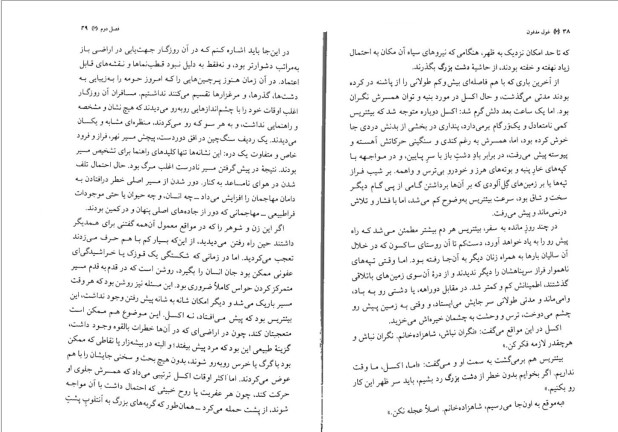 ۳۸ غول مدفون
که تا حد امکان نزدیک به ظهر، هنگامی که نیروهای سیاه آن مکان به احتمال
زیاد نهفته و خفته بودند، از حاشیهٔ دشت بزرگ بگذرند.
از آخرین باری که با هم فاصله‌ای بیش‌وکم طولانی را از پاشنه در کرده
بودند مدتی می‌گذشت، و حال اکسل در مورد بنیه و توان همسرش نگران
بود. اما یک ساعت بعد دلش گرم شد: اکسل دوباره متوجه شد که بیتریس
کمی نامتعادل و یک‌ورگام برمی‌دارد، پنداری در بخشی از بدنش دردی جا
خوش کرده بود، اما، همسرش به رغم کندی و سنگینی حرکاتش آهسته و
پیوسته پیش می‌رفت، در برابر بادِ دشتِ باز با سرِ پایین، و در مواجهه با
کپه‌های خارِ پنبه و بوته‌های هرز و خودرو بی‌ترس و واهمه. بر شیب فراز
تپه‌ها یا بر زمین‌های گِل‌آلودی که بر آن‌ها برداشتن گامی از پی گام دیگر
سخت و شاق بود، سرعت بیتریس به‌وضوح کم می‌شد، اما با فشار و تلاش
درنمی‌ماند و پیش می‌رفت.
در چند روزِ مانده به سفر، بیتریس هر دم بیشتر مطمئن می‌شد که راه
پیش رو را به یاد خواهد آورد، دست‌کم تا آن روستای ساکسون که در خلال
آن سالیان بارها به همراه زنان دیگر به آن‌جا رفته بود. اما وقتی تپه‌های
ناهموار فراز سرپناهشان را دیگر ندیدند و از درهٔ آن‌سوی زمین‌های باتلاقی
گذشتند، اطمینانش کم و کمتر شد. در مقابل دوراهه، یا دشتی رو به باد،
وامی‌ماند و مدتی طولانی سر جایش می‌ایستاد، و وقتی به زمین پیش رو
چشم می‌دوخت، ترس و وحشت به چشمان خیره‌اش می‌خزید.
اکسل در این مواقع می‌گفت: «نگران نباش، شاهزاده‌خانم. نگران نباش و
هرچقدر لازمه فکر کن.»
بیتریس هم برمی‌گشت به سمت او و می‌گفت: «اما، اکسل، ما وقت
نداریم. اگر بخوایم بدون خطر از دشت بزرگ رد بشیم، باید سر ظهر این کار
رو بکنیم.»
«به‌موقع به اون‌جا می‌رسیم، شاهزاده‌خانم. اصلاً عجله نکن.»
فصل دوم ۳۹
در این‌جا باید اشاره کنم که در آن روزگار جهت‌یابی در اراضی باز
به‌مراتب دشوارتر بود، و نه‌فقط به دلیل نبود قطب‌نماها و نقشه‌های قابل
اعتماد. در آن زمان هنوز پرچین‌هایی را که امروز حومه را به‌زیبایی به
دشت‌ها، گذرها، و مرغزارها تقسیم می‌کنند نداشتیم. مسافران آن روزگار
اغلب اوقات خود را با چشم‌اندازهایی روبه‌رو می‌دیدند که هیچ نشان و مشخصه
و راهنمایی نداشت، و به هر سو که رو می‌کردند، منظره‌ای مشابه و یکسان
می‌دیدند. یک ردیف سنگ‌چین در افق دوردست، پیچش مسیر نهر، فراز و فرود
خاص و متفاوت یک دره: این نشانه‌ها تنها کلیدهای راهنما برای تشخیص مسیر
بودند. نتیجهٔ در پیش گرفتن مسیر نادرست اغلب مرگ بود. حال احتمال تلف
شدن در هوای نامساعد به کنار، دور شدن از مسیر اصلی خطر درافتادن به
دامان مهاجمان را افزایش می‌داد ــ چه انسان، و چه حیوان یا حتی موجودات
فراطبیعی ــ مهاجمانی که دور از جاده‌های اصلی پنهان و در کمین بودند.
اگر این زن و شوهر را که در مواقع معمول آن‌همه گفتنی برای همدیگر
داشتند حین راه رفتن می‌دیدید، از این‌که بسیار کم با هم حرف می‌زدند
تعجب می‌کردید. اما در زمانی که شکستگی یک قوزک یا خراشیدگی‌ای
عفونی ممکن بود جان انسان را بگیرد، روشن است که در قدم به قدم مسیر
متمرکز کردن حواس کاملاً ضروری بود. این مسئله نیز روشن بود که هر وقت
مسیر باریک می‌شد و دیگر امکان شانه به شانه پیش رفتن وجود نداشت، این
بیتریس بود که پیش می‌افتاد، نه اکسل. این موضوع هم ممکن است
متعجبتان کند، چون در اراضی‌ای که در آن‌ها خطرات بالقوه وجود داشت،
گزینهٔ طبیعی این بود که مرد پیش بیفتد؛ و البته در بیشه‌زار یا نقاطی که ممکن
بود با گرگ یا خرس روبه‌رو شوند، بدون هیچ بحث و سخنی جایشان را با هم
عوض می‌کردند. اما اکثر اوقات اکسل ترتیبی می‌داد که همسرش جلوی او
حرکت کند، چون هر عفریت یا روح خبیثی که احتمال داشت با آن مواجه
شوند، از پشت حمله می‌کرد ــ همان‌طور که گربه‌های بزرگ به آنتلوپِ پشتِ